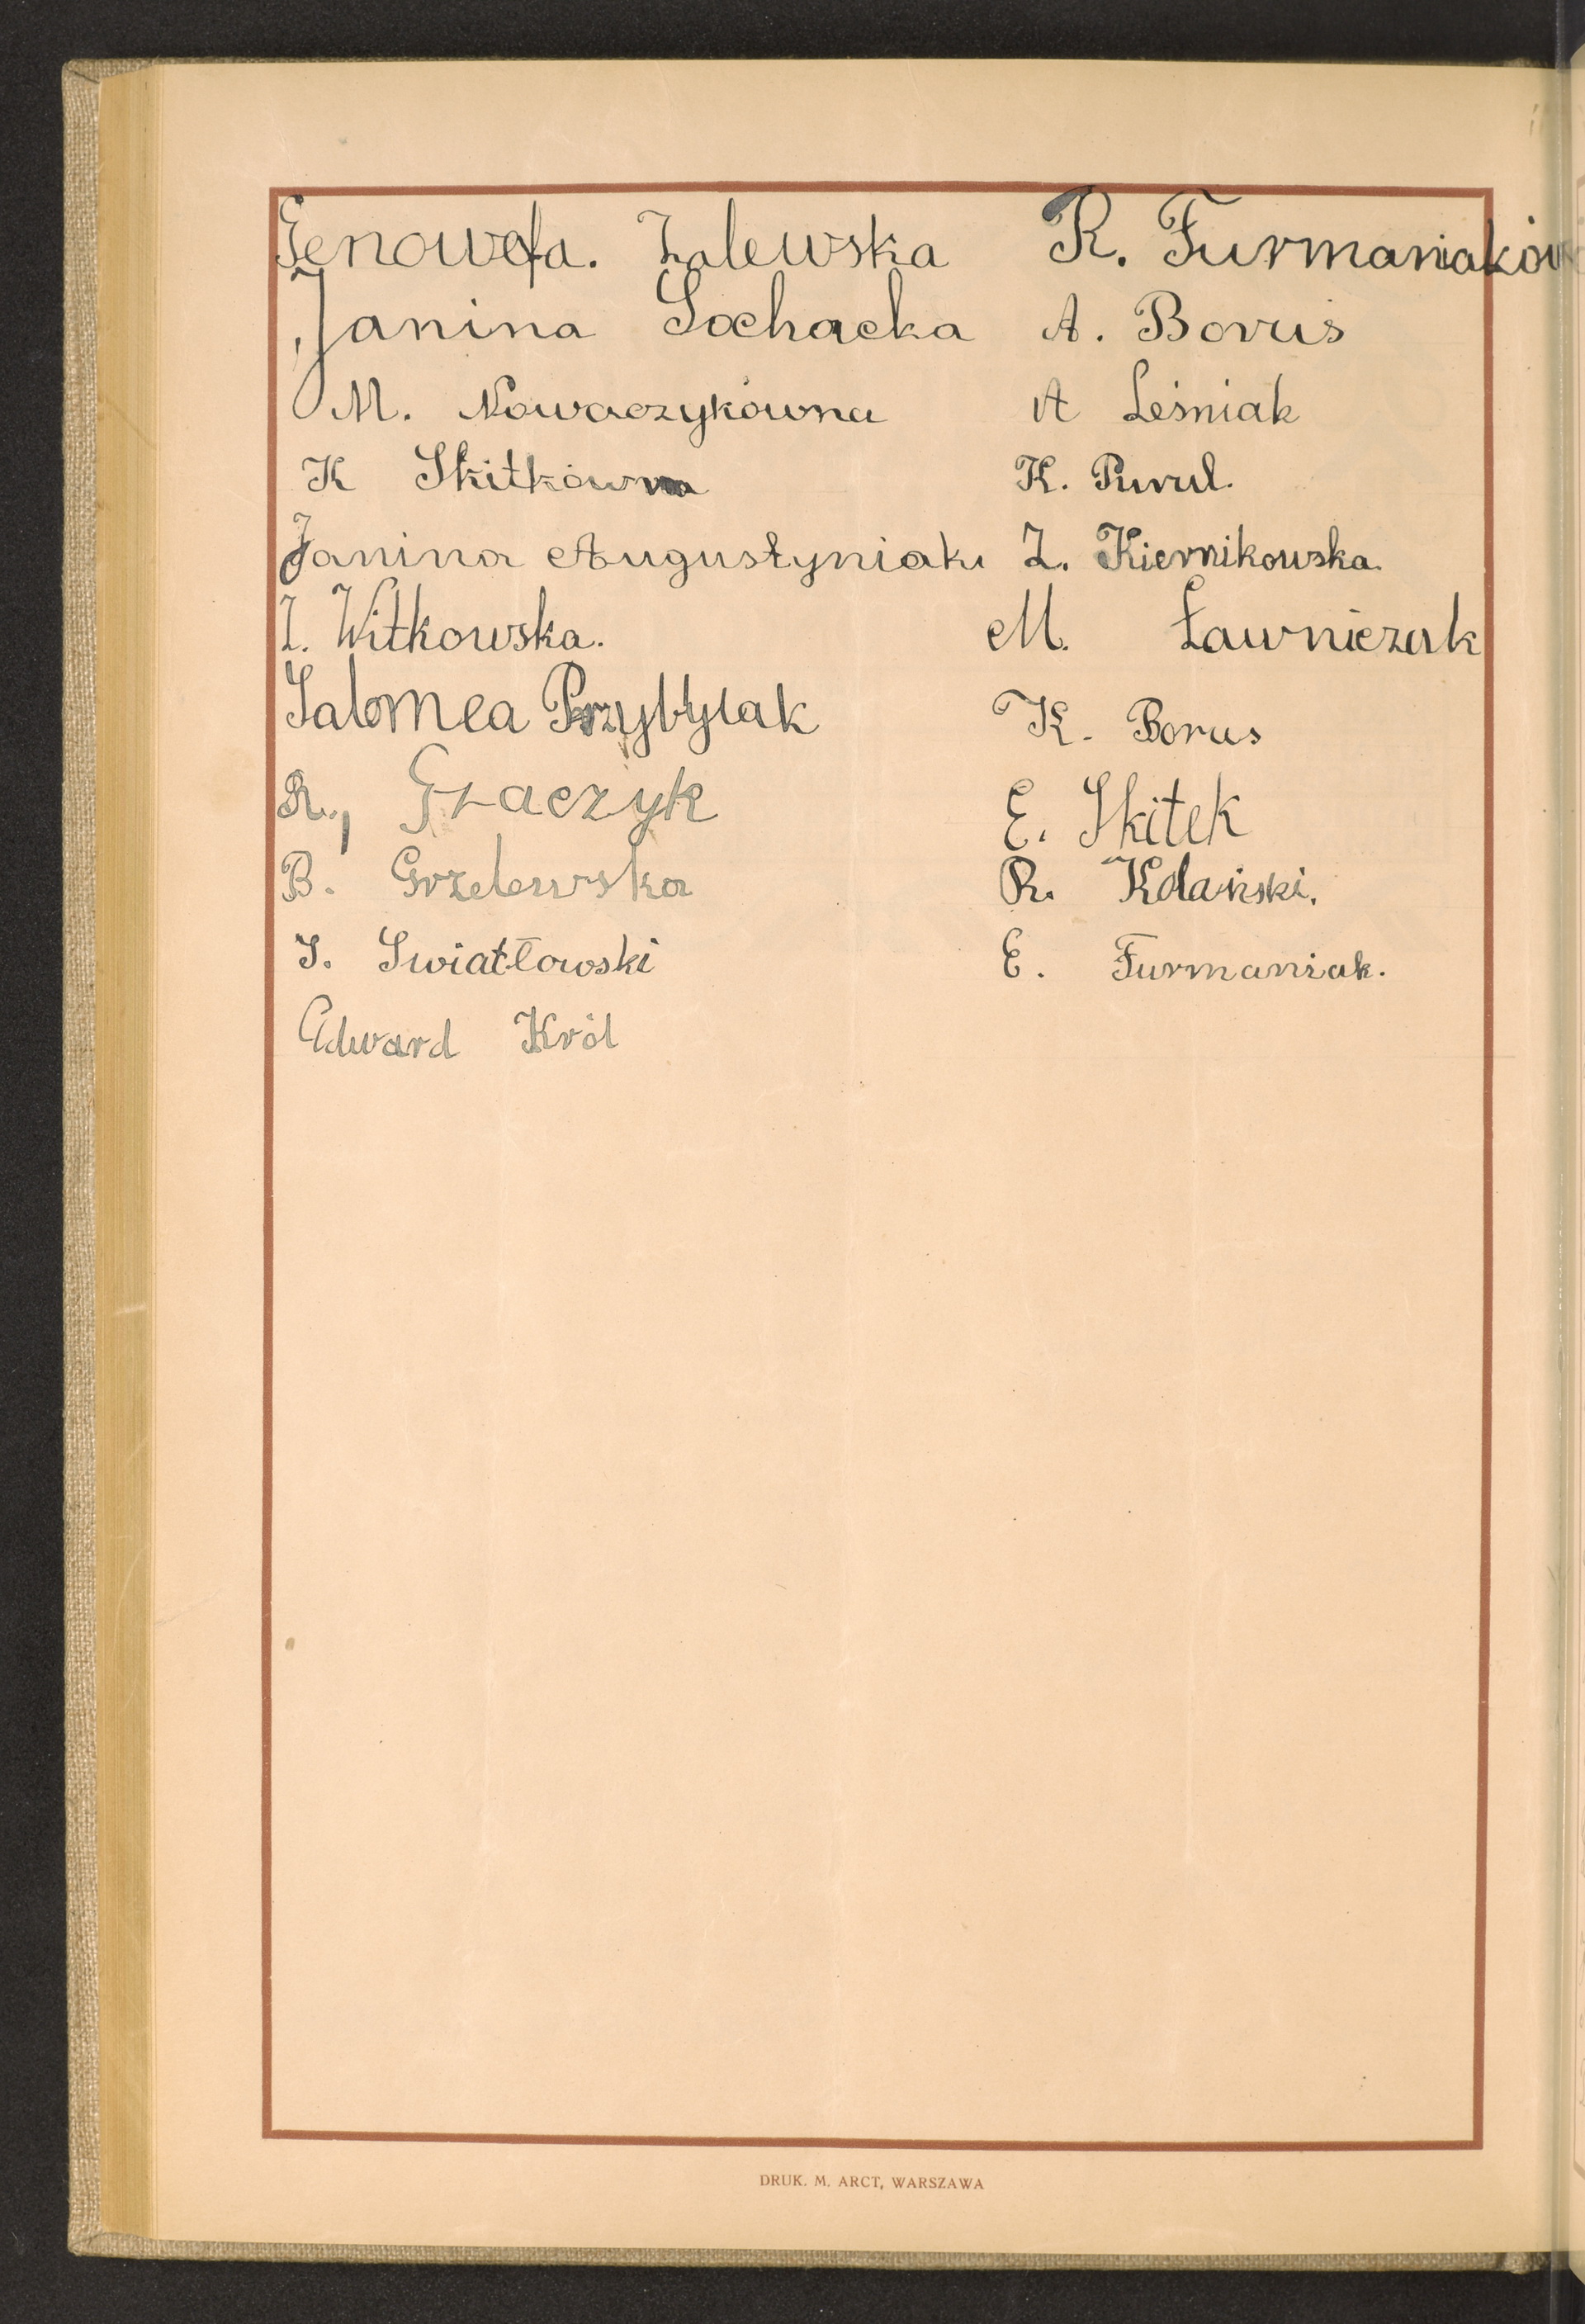 Genowefa. Zalewska
Janina Sochacka
M. Nowaczykówna
K Skitkówna
Janina Augustyniak
Z. Witkowska.
Salomea Przybylak
R., Graczyk
B. Grzelewska
S. Swiatłowski
Edward Król
R. Furmaniaków
A. Borus
A Leśniak
K. Purul.
Z. Kiernikowska.
M. Ławniczak
K. Borus
E. Skitek
R. Kolański.
E. Furmaniak.
DRUK. M. ARCT, WARSZAWA